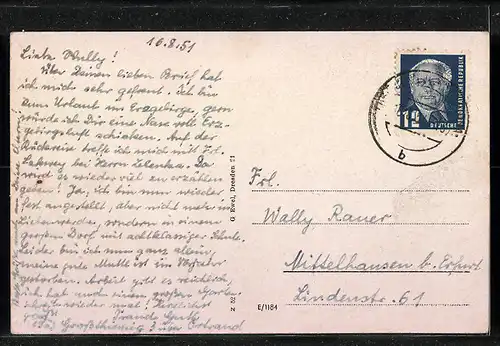 16.8.51
Liebe Wally!
Über Deinen lieben Brief hat
ich mich sehr gefreut. Ich bin
zum Urlaub im Erzgebirge, gern
würde ich Dir eine Nase voll Erz-
gebirgsluft schicken. Auf der
Rückreise treffe ich mich mit Frl.
bei Herrn Da
wird es wieder viel zu erzählen
geben! Ja, ich bin nun wieder
fest angestellt, aber nicht mehr in
sondern in einem
großen Dorf mit achtklassiger Schule.
Leider bin ich nun ganz allein,
meine gute Mutti ist im
gestorben. Arbeit gibt es reichlich,
ich hab auch einen großen Garten.
wieder mal! Herzlichst
grüßt
3 über Ortrand
G Ewel, Dresden 21
Z 22
E/1184
12
DEUTSCHE
DEMOKRATISCHE REPUBLIK
b
Frl.
Wally Rauer
Mittelhausen b. Erfurt
Lindenstr. 61